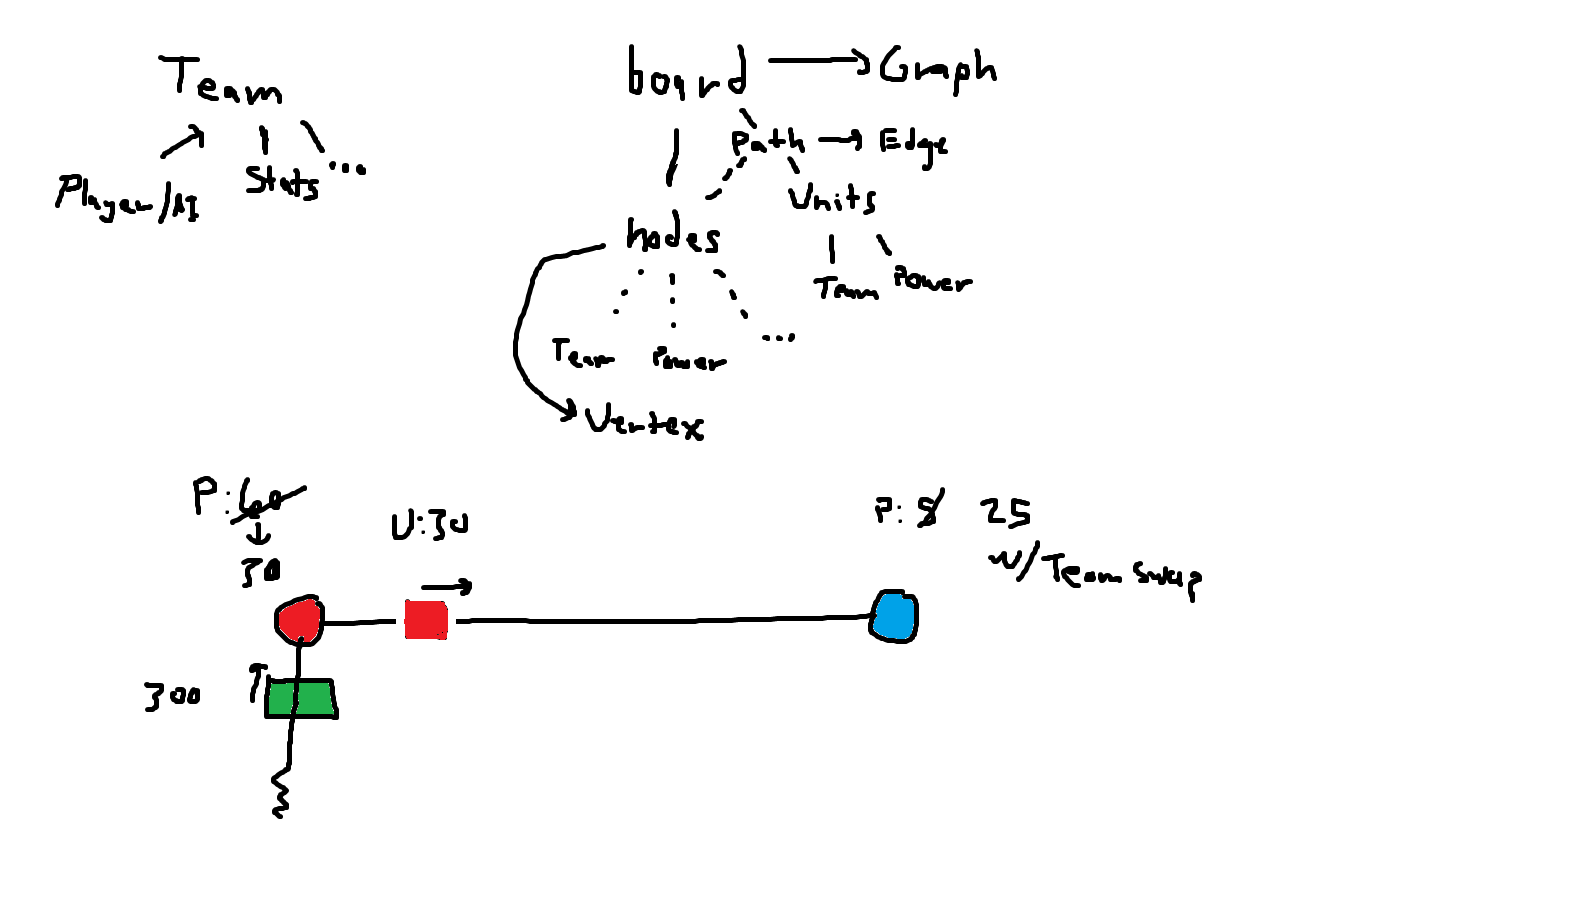 Team
Player/AI
Stats
...
board
Graph
Path
Edge
Units
Team
Power
nodes
Team
Power
...
Vertex
P: 60
30
U:30
P: 5 25
w/Team swap
300